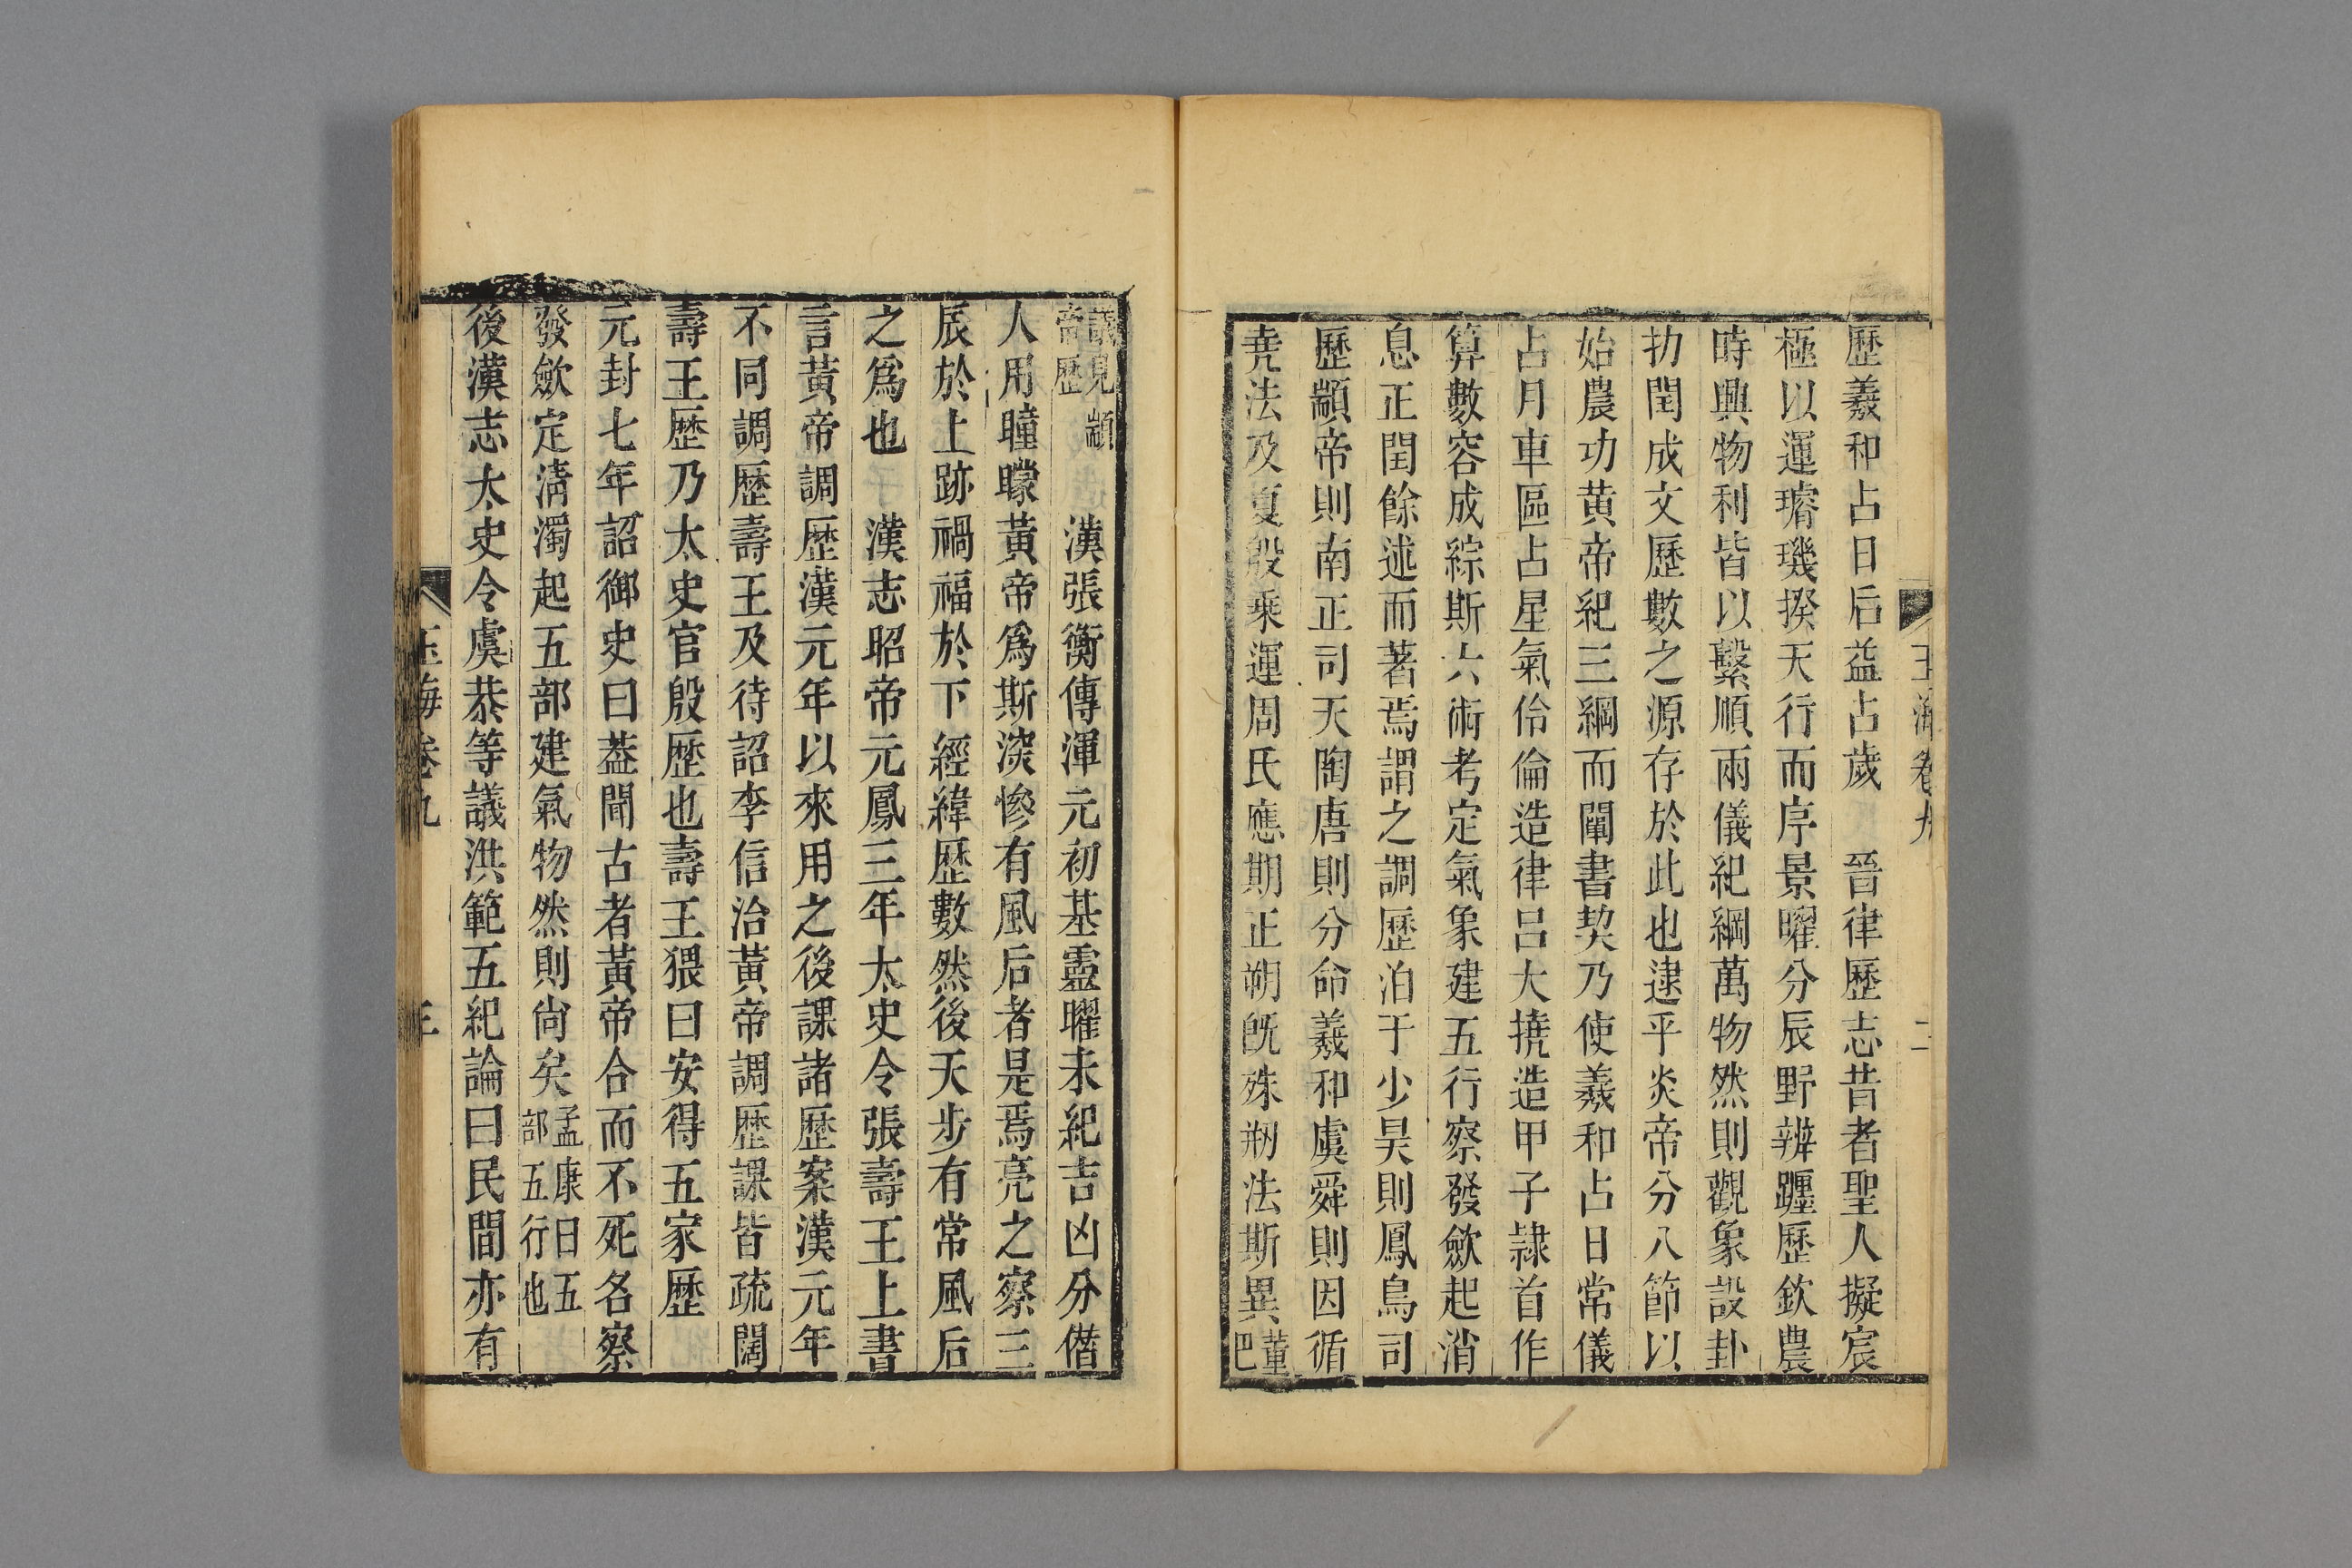 玉海卷九 二
歷羲和占日后益占歲 晉律歷志昔者聖人擬宸
極以運璿璣揆天行而序景曜分辰野辨躔歷欽農
時興物利皆以繫順兩儀紀綱萬物然則觀象設卦
扐閏成文歷數之源存於此也逮乎炎帝分八節以
始農功黃帝紀三綱而闡書契乃使羲和占日常儀
占月車區占星氣伶倫造律呂大撓造甲子隷首作
算數容成綜斯六術考定氣象建五行察發歛起消
息正閏餘述而著焉謂之調歷洎于少昊則鳳鳥司
歷顓帝則南正司天陶唐則分命羲和虞舜則因循
堯法及夏殷乘運周氏應期正朔旣殊剏法斯異董
巴
議見顓
帝歷 漢張衡傳渾元初基靈曜未紀吉凶分偺
人用曈曚黃帝爲斯深慘有風后者是焉亮之察三
辰於上跡禍福於下經緯歷數然後天步有常風后
之爲也 漢志昭帝元鳳三年太史令張壽王上書
言黃帝調歷漢元年以來用之後課諸歷案漢元年
不同調歷壽王及待詔李信治黃帝調歷課皆疏闊
壽王歷乃太史官殷歷也壽王猥曰安得五家歷
元封七年詔御史曰葢聞古者黃帝合而不死名察
發歛定淸濁起五部建氣物然則尙矣孟康曰五
部五行也
後漢志太史令虞恭等議洪範五紀論曰民間亦有
玉海卷九 三